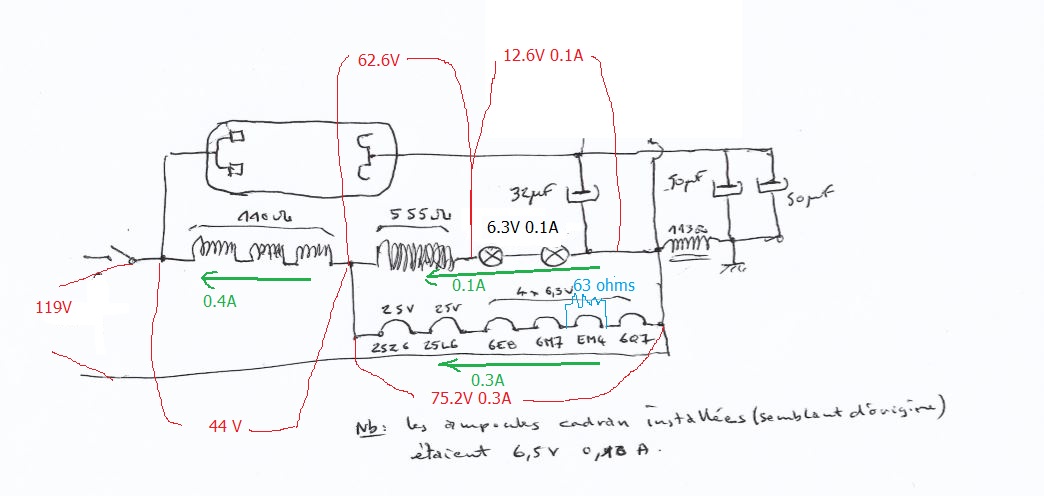 62.6V
12.6V 0.1A
32µF
50µF
50µF
110Ω
555Ω
6.3V 0.1A
113Ω
119V
0.4A
0.1A
63 ohms
4 x 6,3V
25V
25V
25Z6
25L6
6E8
6M7
EM4
6Q7
0.3A
75.2V 0.3A
44 V
Nb: les ampoules cadran installées (semblant d'origine)
étaient 6,5V A.